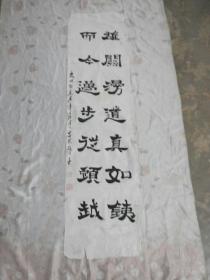 雄關漫道真如鉄
而今邁步從頭越